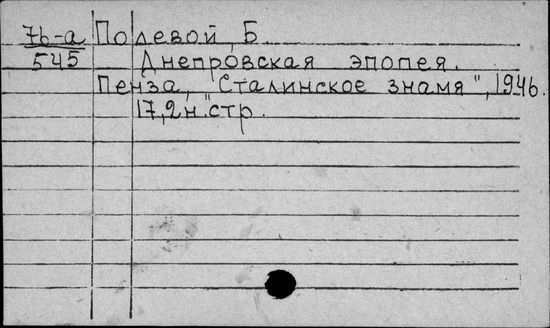 7б-а Полевой, Б.
545 Днепровская эпопея.
Пенза, "Сталинское знамя", 1946.
17,2н. стр.